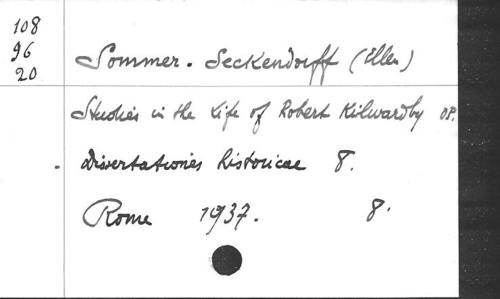 108
96
20
Sommer-Seckendorff (Ellen)
Studies in the Life of Robert Kilwardby OP.
Dissertationes historicae 8.
Rome 1937. 8.